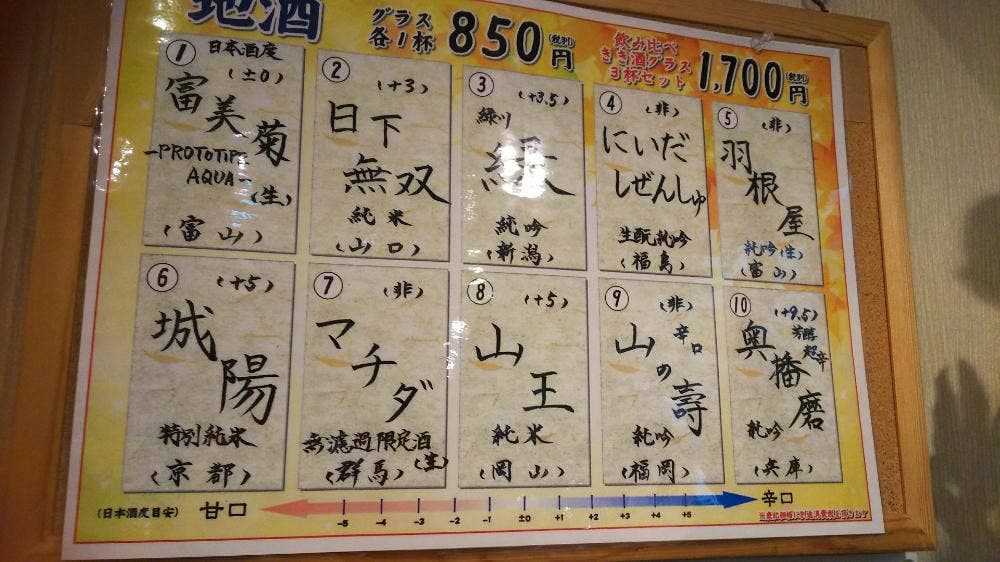 地酒
グラス
各1杯
850円
(税別)
飲み比べ
きき酒グラス
3杯セット
1,700円
(税別)
① 日本酒度
(±0)
富美菊
-PROTOTYPE
AQUA-
(生)
(富山)
② (+3)
日下
無双
純米
(山口)
③ (+3.5)
緑川
緑
純吟
(新潟)
④ (非)
にいだ
しぜんしゅ
生酛純吟
(福島)
⑤ (非)
羽根屋
純吟(生)
(富山)
⑥ (+5)
城陽
特別純米
(京都)
⑦ (非)
マチダ
無濾過限定酒
(生)
(群馬)
⑧ (+5)
山王
純米
(岡山)
⑨ (非)
辛口
山の壽
純吟
(福岡)
⑩ (+9.5)
芳醇
超辛
奥播磨
純吟
(兵庫)
(日本酒度目安) 甘口 -5 -4 -3 -2 -1 ±0 +1 +2 +3 +4 +5 辛口